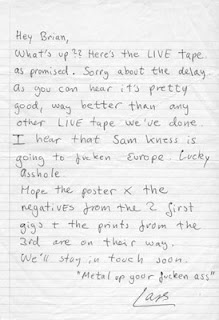 Hey Brian,
What's up?? Here's the LIVE tape
as promised. Sorry about the delay
as you can hear it's pretty
good, way better than any
other LIVE tape we've done.
I hear that Sam Kness is
going to fucken Europe. Lucky
asshole
Hope the poster x the
negatives from the 2 first
gigs + the prints from the
3rd are on their way.
We'll stay in touch soon.
"Metal up your fucken ass"
Lars